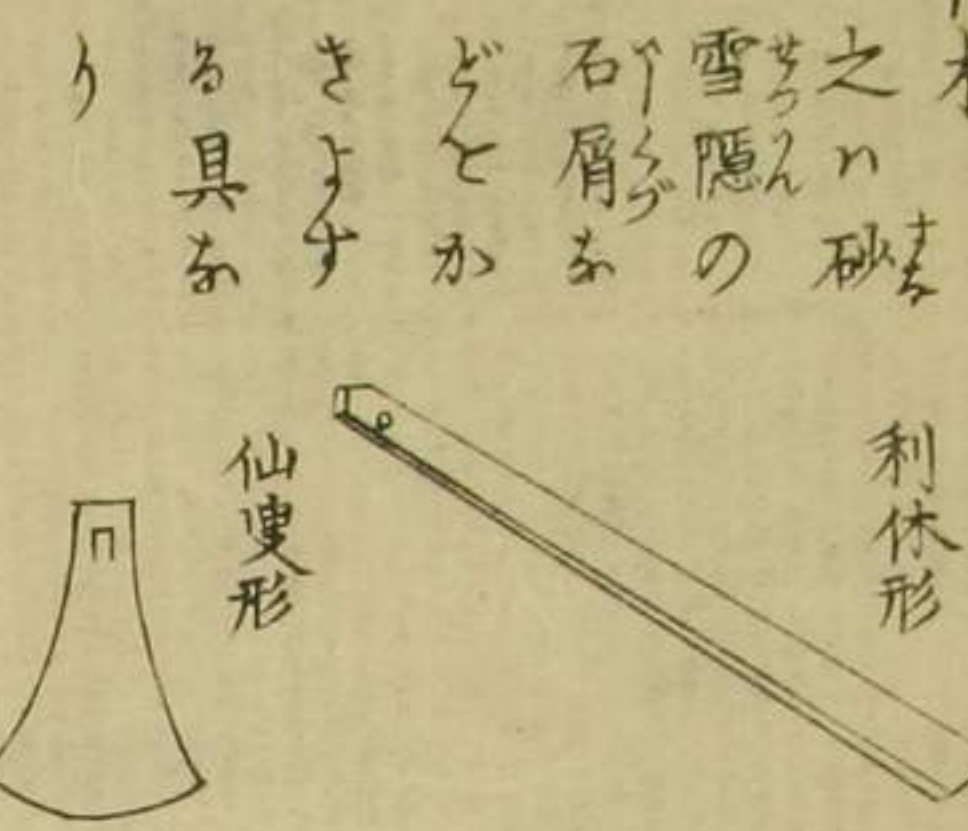 之ハ砂
雪隠の
石屑な
どをか
きよす
る具な
り
利休形
仙叟形